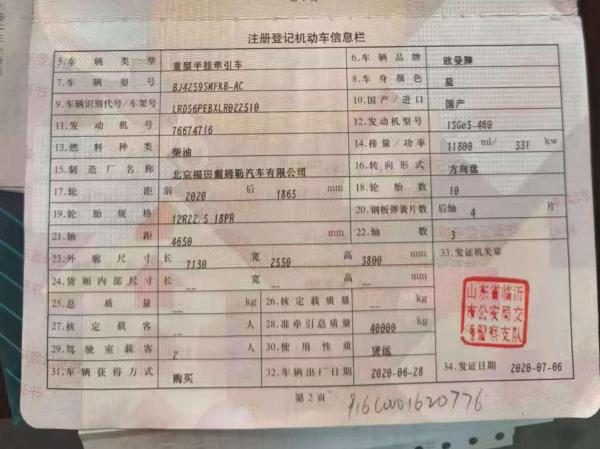 注册登记机动车信息栏
5.车辆类型 重型半挂牵引车 6.车辆品牌 欧曼牌
7.车辆型号 BJ4259SMFKB-AC 8.车身颜色 蓝
9.车辆识别代号/车架号 LRDS6PEBXLR022510 10.国产/进口 国产
11.发动机号 76674716 12.发动机型号 ISGe5-460
13.燃料种类 柴油 14.排量/功率 11800 ml/ 331 kw
15.制造厂名称 北京福田戴姆勒汽车有限公司 16.转向形式 方向盘
17.轮距 前 2020 后 1865 mm 18.轮胎数 10
19.轮胎规格 12R22.5 18PR 20.钢板弹簧片数 后轴 4 片
21.轴距 4650 mm 22.轴数 3
23.外廓尺寸 长 7130 宽 2550 高 3800 mm 33.发证机关章
24.货厢内部尺寸 长 -- 宽 -- 高 -- mm
25.总质量 -- kg 26.核定载质量 -- kg
27.核定载客 -- 人 28.准牵引总质量 40000 kg
29.驾驶室载客 2 人 30.使用性质 货运
31.车辆获得方式 购买 32.车辆出厂日期 2020-06-28 34.发证日期 2020-07-06
山东省临沂
市公安局交
通警察支队
第2页
916C0001620776